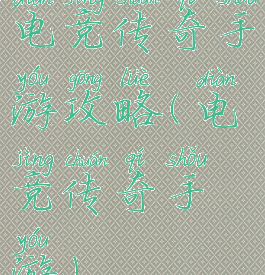 diàn jìng chuán qí shǒu
电竞传奇手
yóu gōng lüè diàn
游攻略(电
jìng chuán qí shǒu
竞传奇手
yóu
游)